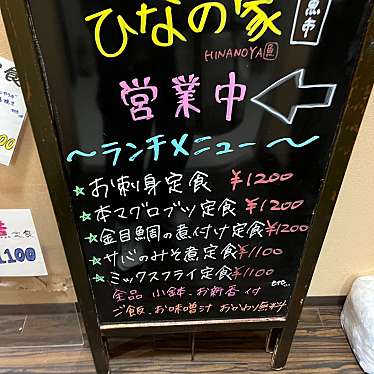 ひなの家
魚市
HINANOYA 魚
営業中
～ランチメニュー～
☆お刺身定食 ¥1200
☆本マグロブツ定食 ¥1200
☆金目鯛の煮付け定食 ¥1200
☆サバのみそ煮定食 ¥1100
☆ミックスフライ定食 ¥1100
etc..
全品 小鉢、お新香 付
ご飯、お味噌汁 おかわり無料
定食
1100